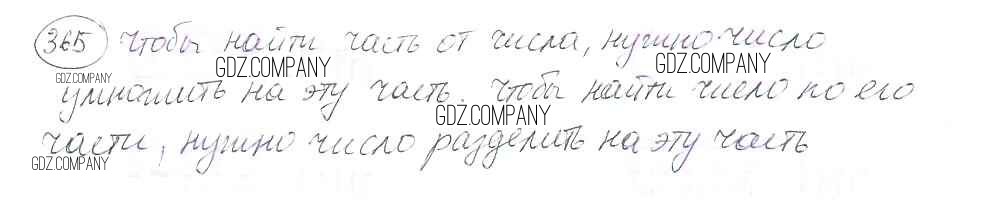 365 Чтобы найти часть от числа, нужно число
GDZ.COMPANY
GDZ.COMPANY
GDZ.COMPANY
умножить на эту часть. Чтобы найти число по его
GDZ.COMPANY
части, нужно число разделить на эту часть
GDZ.COMPANY